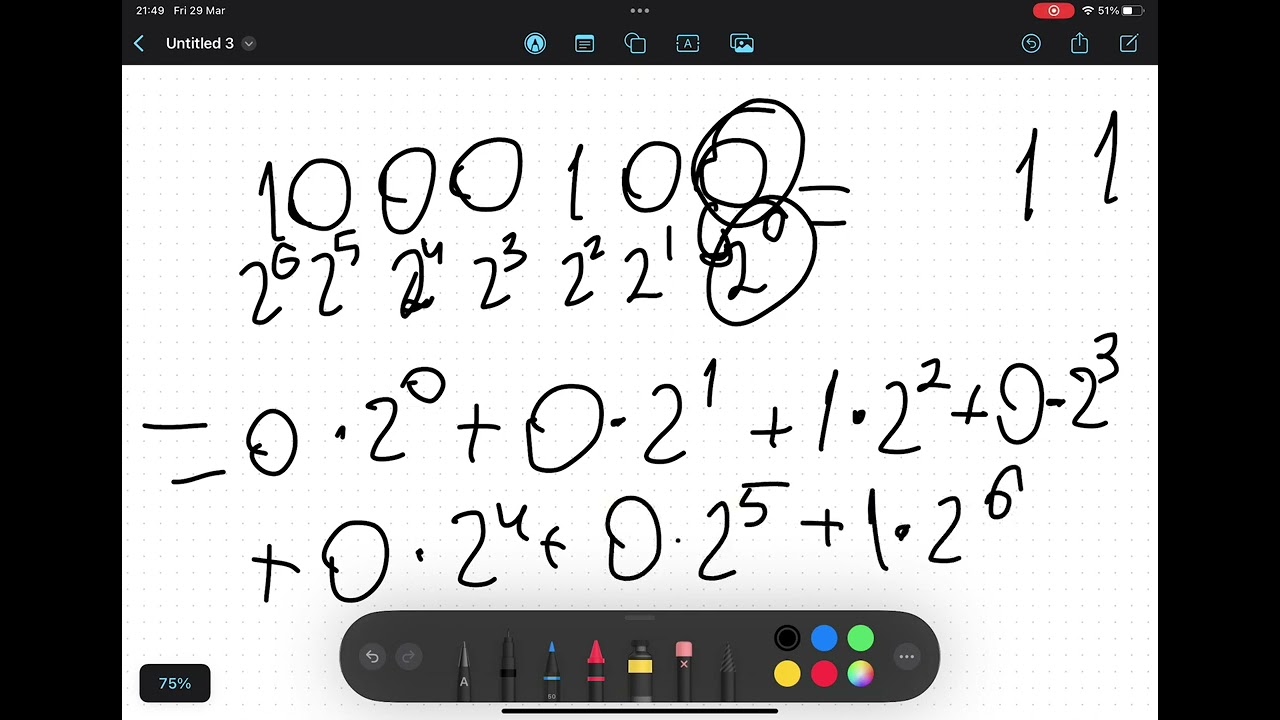 21:49 Fri 29 Mar 51%
Untitled 3
1 0 0 0 1 0 0 = 1 1
2⁶ 2⁵ 2⁴ 2³ 2² 2¹ 2⁰
= 0 · 2⁰ + 0 · 2¹ + 1 · 2² + 0 · 2³
+ 0 · 2⁴ + 0 · 2⁵ + 1 · 2⁶
A
50
75%